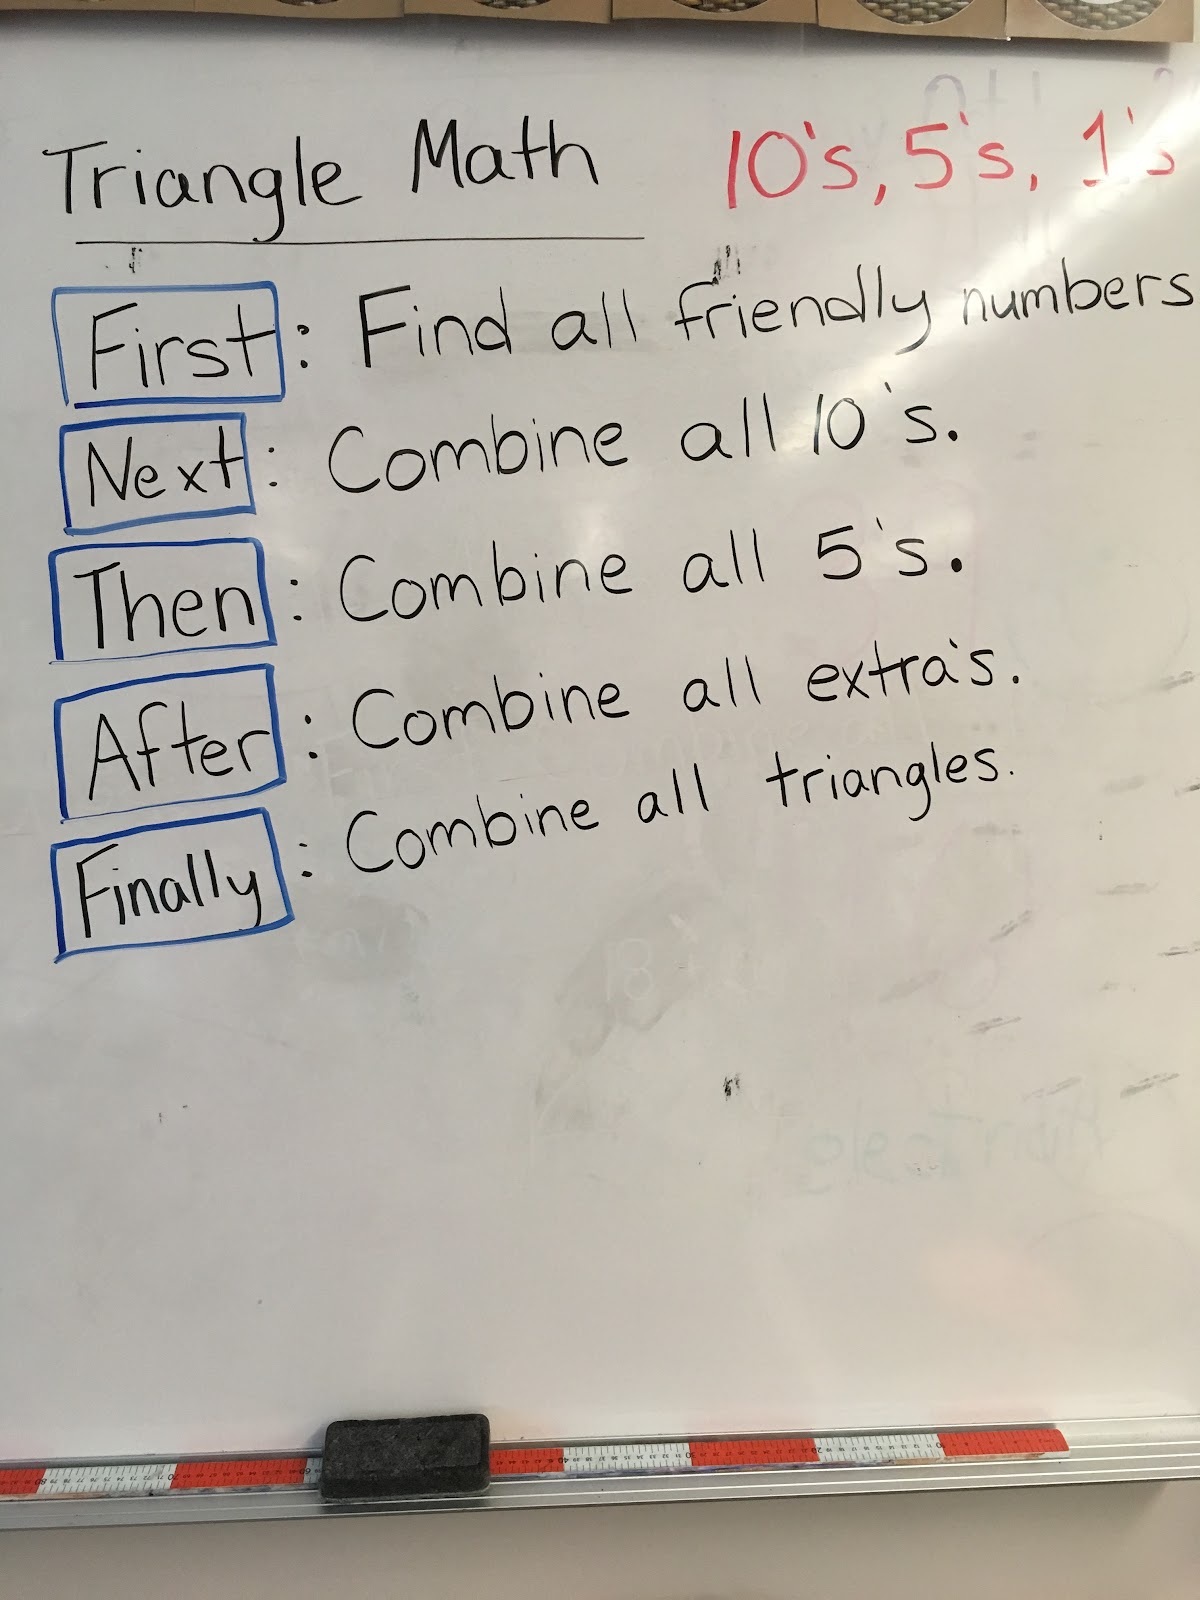 Triangle Math 10's, 5's, 1's
First: Find all friendly numbers
Next: Combine all 10's.
Then: Combine all 5's.
After: Combine all extra's.
Finally: Combine all triangles.